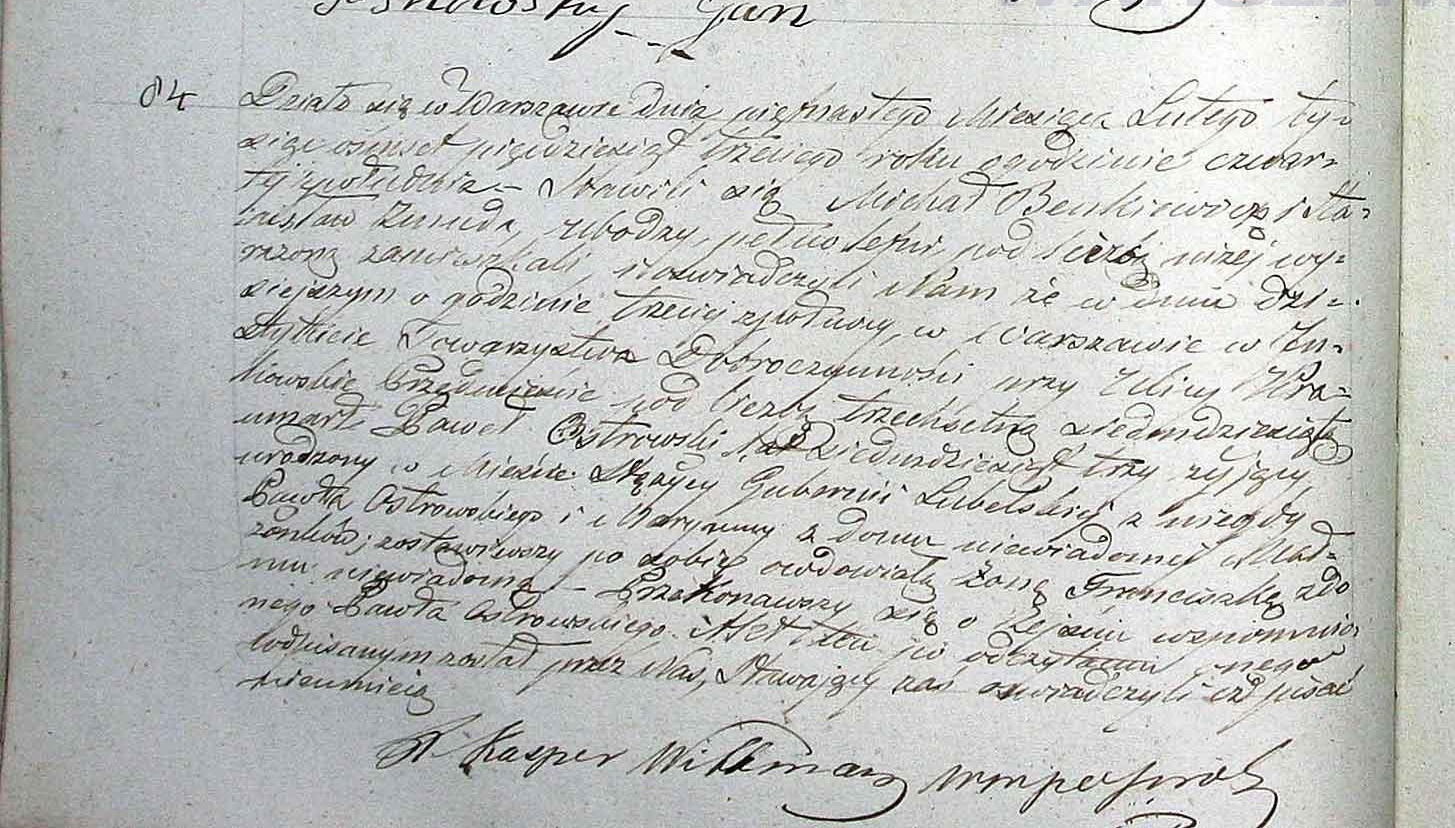 Jan
84 Działo się w Warszawie dnia piętnastego Miesiąca Lutego ty=
siąc ośmset pięćdziesiąt trzeciego roku o godzinie czwar=
tej z południa. – Stawili się Michał Benkiewicz i Sta=
nisław Żmuda, ubodzy, pełnoletni, pod liczbą niżej wy=
rażoną zamieszkali, i oświadczyli Nam że w dniu dzi=
siejszym o godzinie trzeciej z północy, w Warszawie w In=
stytucie Towarzystwa Dobroczynności przy Ulicy Kra=
kowskie Przedmieście pod liczbą trzechsetną siedmdziesiątą
umarł Paweł Ostrowski lat siedmdziesiąt trzy żyjący
urodzony w Mieście Stężycy Gubernii Lubelskiej z niegdy
Pawła Ostrowskiego i Maryanny z domu niewiadomej Mał=
żonków; zostawiwszy po sobie owdowiałą żonę Franciszkę z do
mu niewiadomą – Przekonawszy się o zejściu wspomnio=
nego Pawła Ostrowskiego. Akt ten po odczytaniu onego
podpisanym został przez Nas, Stawający zaś oświadczyli iż pisać
nieumieją
X. Kasper Wittman